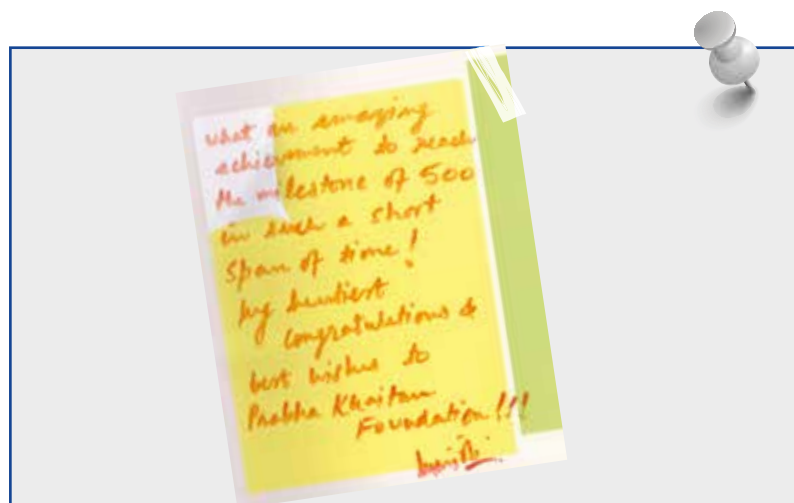 what an amazing
achievement to reach
the milestone of 500
in such a short
span of time!
my heartiest
congratulations &
best wishes to
Prabha Khaitan
Foundation!!!